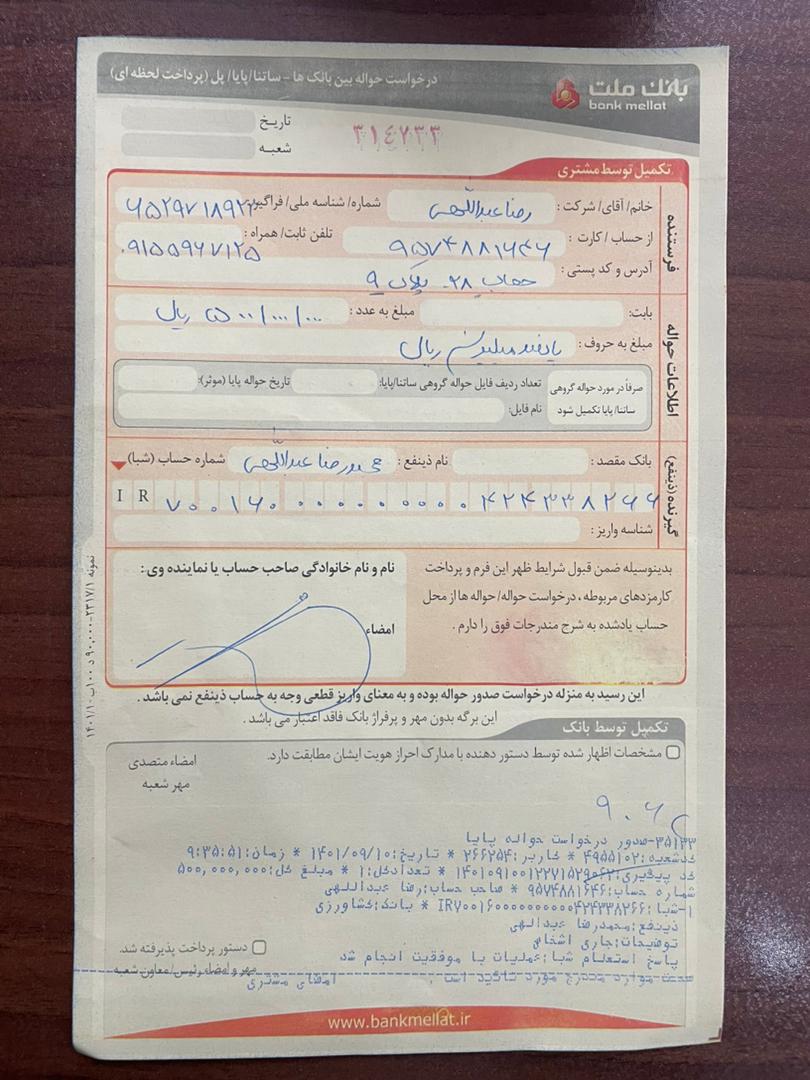 بانک ملت
bank mellat
درخواست حواله بین بانک ها - ساتنا/پایا/ پل (پرداخت لحظه ای)
تاریخ
۳۱۴۷۳۳
شعبه
تکمیل توسط مشتری
فرستنده
خانم/ آقای/ شرکت: رضا عبداللهی شماره/ شناسه ملی/ فراگیر:
از حساب/ کارت: ۹۵۷۴۸۸۱۶۴۶ تلفن ثابت/ همراه: ۰۹۱۵۵۹۶۷۱۲۵
آدرس و کد پستی: ۲۸- پلاک ۹
اطلاعات حواله
بابت: مبلغ به عدد: ۵۰۰/۰۰۰/۰۰۰ ریال
مبلغ به حروف: پانصد میلیون ریال
صرفاً در مورد حواله گروهی ساتنا/ پایا تکمیل شود
تعداد ردیف فایل حواله گروهی ساتنا/پایا: تاریخ حواله پایا (موثر):
نام فایل:
گیرنده (ذینفع)
بانک مقصد: نام ذینفع: محمدرضا عبداللهی شماره حساب (شبا)
IR ۷۰۰۱۶۰۰۰۰۰۰۰۰۰۰۴۲۴۳۳۸۲۶۶
شناسه واریز:
بدینوسیله ضمن قبول شرایط ظهر این فرم و پرداخت
کارمزدهای مربوطه، درخواست حواله/ حواله ها از محل
حساب یادشده به شرح مندرجات فوق را دارم.
نام و نام خانوادگی صاحب حساب یا نماینده وی:
امضاء
این رسید به منزله درخواست صدور حواله بوده و به معنای واریز قطعی وجه به حساب ذینفع نمی باشد.
این برگه بدون مهر و پرفراژ بانک فاقد اعتبار می باشد.
تکمیل توسط بانک
مشخصات اظهار شده توسط دستور دهنده با مدارک احراز هویت ایشان مطابقت دارد.
امضاء متصدی
مهر شعبه
۳۵۱۳۳-صدور درخواست حواله پایا
کدشعبه:۴۹۵۵۱۰۲ * کاربر:۲۶۶۲۵۴ * تاریخ:۱۴۰۱/۰۹/۱۰ * زمان:۹:۳۵:۵۱
کد پیگیری:۱۴۰۱۰۹۱۰۰۱۲۲۷۱۵۲۹۰۶۲ * تعدادکل:۱ * مبلغ کل:۵۰۰,۰۰۰,۰۰۰
شماره حساب:۹۵۷۴۸۸۱۶۴۶ * صاحب حساب:رضا عبدالهی
۱-شبا:IR۷۰۰۱۶۰۰۰۰۰۰۰۰۰۰۴۲۴۳۳۸۲۶۶ * بانک:کشاورزی
ذینفع:محمدرضا عبدالهی
توضیحات:جاری اشخاص
پاسخ استعلام شبا:عملیات با موفقیت انجام شد
صحت موارد مندرج مورد تائید است. امضای مشتری
دستور پرداخت پذیرفته شد.
مهر و امضاء رئیس/ معاون شعبه
www.bankmellat.ir